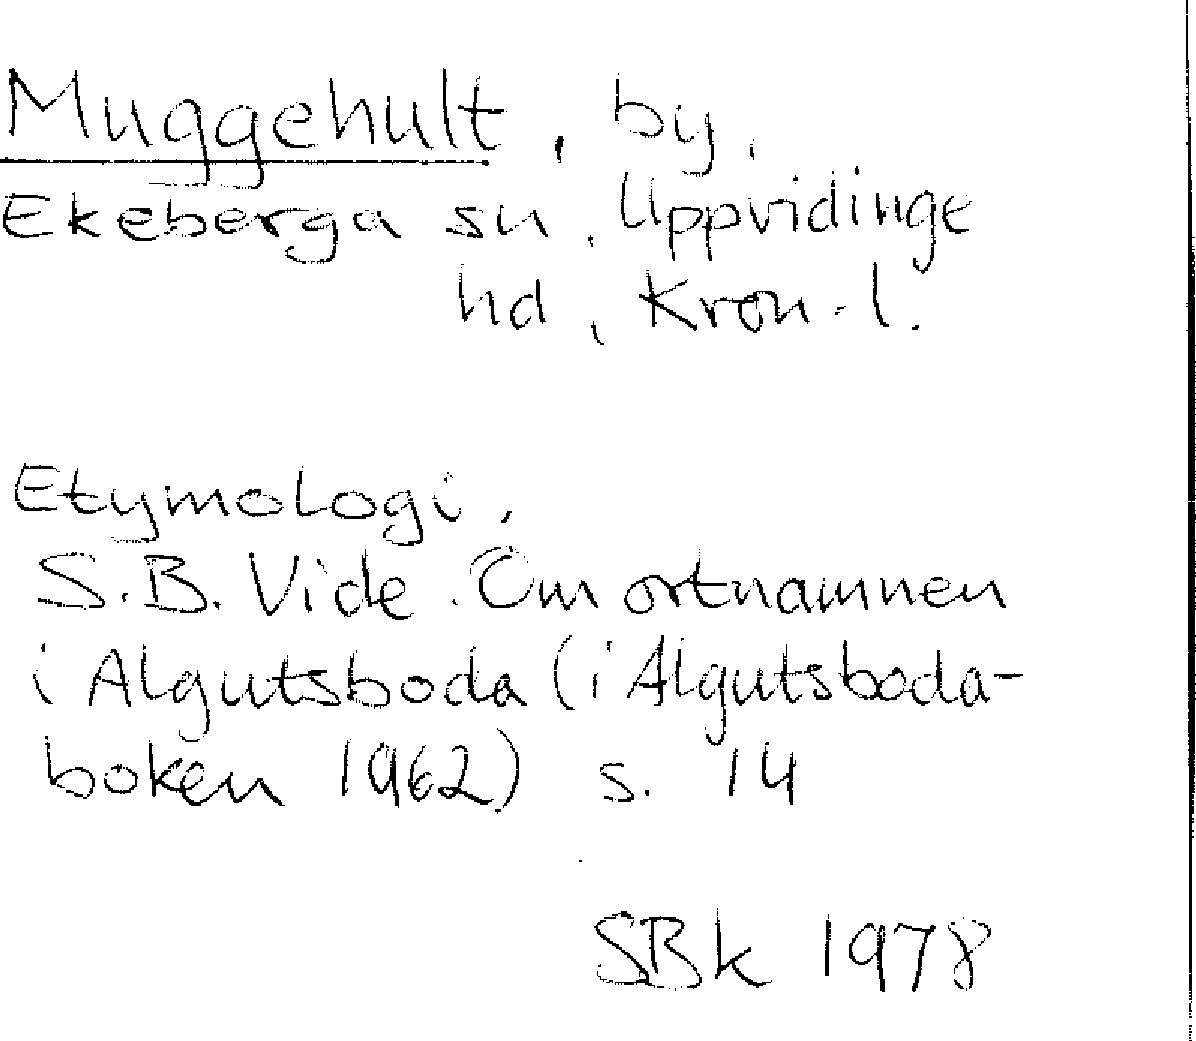 Muggehult, by,
Ekeberga sn, Uppvidinge
hd, Kron.l.
Etymologi.
S.B. Vide. Om ortnamnen
i Algutsboda (i Algutsboda-
boken 1962) s. 14
SBk 1978